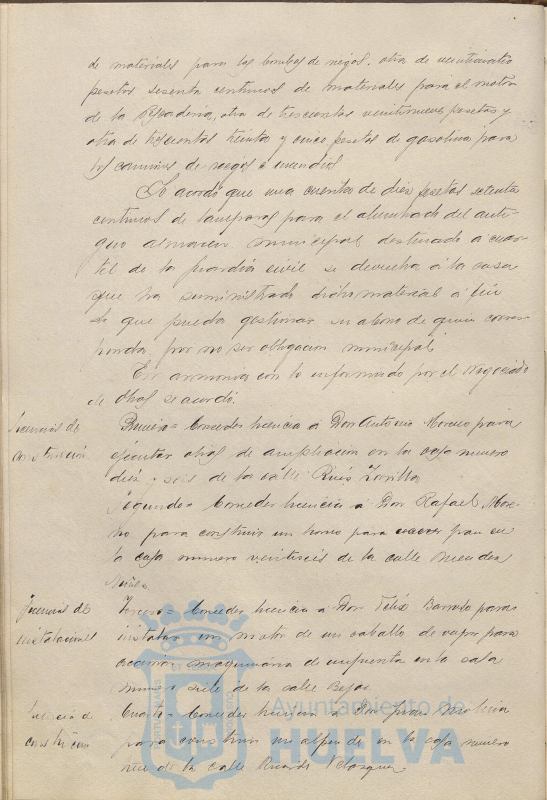 de materiales para las bombas de riegos, otra de veinticuatro
pesetas sesenta centimos de materiales para el motor
de la Pescaderia, otra de trescientas veintinueve pesetas y
otra de trescientas treinta y cinco pesetas de gasolina para
los camiones de riegos e incendios
Se acordó que una cuenta de diez pesetas setenta
centimos de lamparas para el alumbrado del anti-
guo almacen municipal destinado a cuar-
tel de la guardia civil se devuelva á la casa
que ha suministrado dicho material á fin
de que pueda gestionar su abono de quien corres-
ponda, por no ser obligacion municipal.
En armonia con lo informado por el Negociado
de Obras se acordó:
Licencias de
construccion
Primero = Conceder licencia a Don Antonio Moreno para
ejecutar obras de ampliacion en la casa numero
diez y seis de la calle Ruiz Zorrilla
Segundo = Conceder licencia á Don Rafael More-
no para construir un horno para cocer pan en
la casa numero veintiseis de la calle Mendez
Nuñez
Licencias de
instalaciones
Tercero = Conceder licencia a Don Felix Barredo para
instalar un motor de un caballo de vapor para
accionar maquinaria de imprenta en la casa
numero siete de la calle Bejar
Licencia de
construccion
Cuarto = Conceder licencia a Don Juan
para construir un alpende en la casa numero
de la calle Ricardo Velazquez
Ayuntamiento de
HUELVA